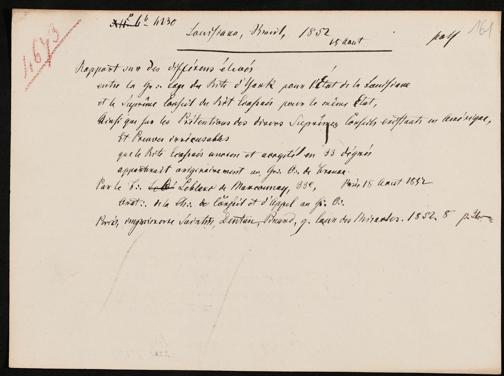 161
4673
Louisiane, Brésil, 1852
15 Aout
Rapport sur des différens élevés
entre la Gr∴ Loge du Rite d'York pour l'État de la Louisiane
et le Suprême Conseil du Rit Ecossais pour le même État,
Ainsi que sur les Prétentions des divers Suprêmes Conseils existants en Amérique,
Et Preuves irrécusables
que le Rite Ecossais ancien et accepté en 33 degrés
appartenait originairement au Gr∴ O∴ de France
Par le F∴ Leblanc de Marconnay, 33e, Paris 15 Aout 1852
de la Ch∴ de Conseil et d'Appel au Gr∴ O∴
Paris, imprimerie 1852. 8